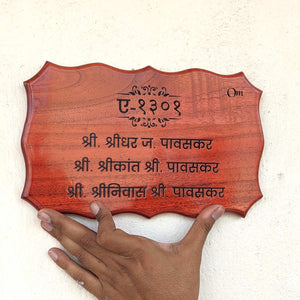 Om
ए-१३०१
श्री. श्रीधर ज. पावसकर
श्री. श्रीकांत श्री. पावसकर
श्री. श्रीनिवास श्री. पावसकर